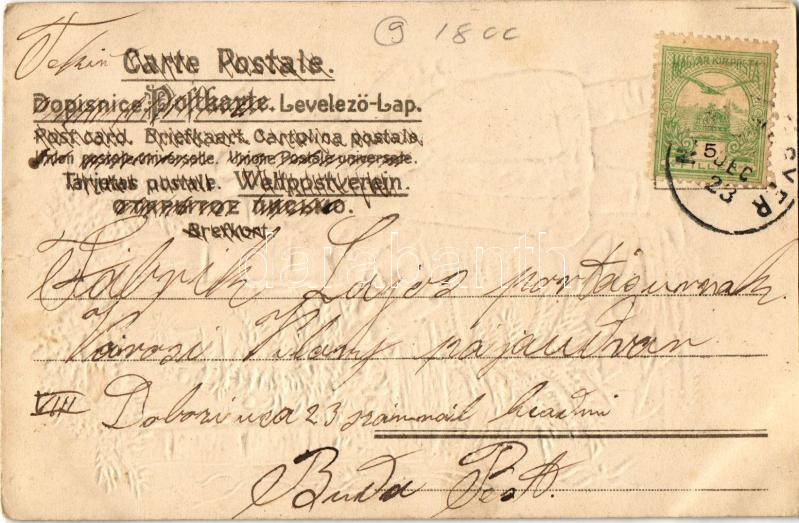 ⑨ 1800
Tekin
Carte Postale.
Dopisnice. Postkarte. Levelező-Lap.
Post card. Briefkaart. Cartolina postale.
Union postale universelle. Unione Postale universale.
Tarjetas postale. Weltpostverein.
ОТКРЫТОЕ ПИСЬМО.
Brefkort.
MAGYAR KIR. POSTA
5
DEC
23
VER
darabanth
Fábrik Lajos portásunnak
Városi Villany
VIII Dobozi uca 23 számnál leadni
Buda Pest.